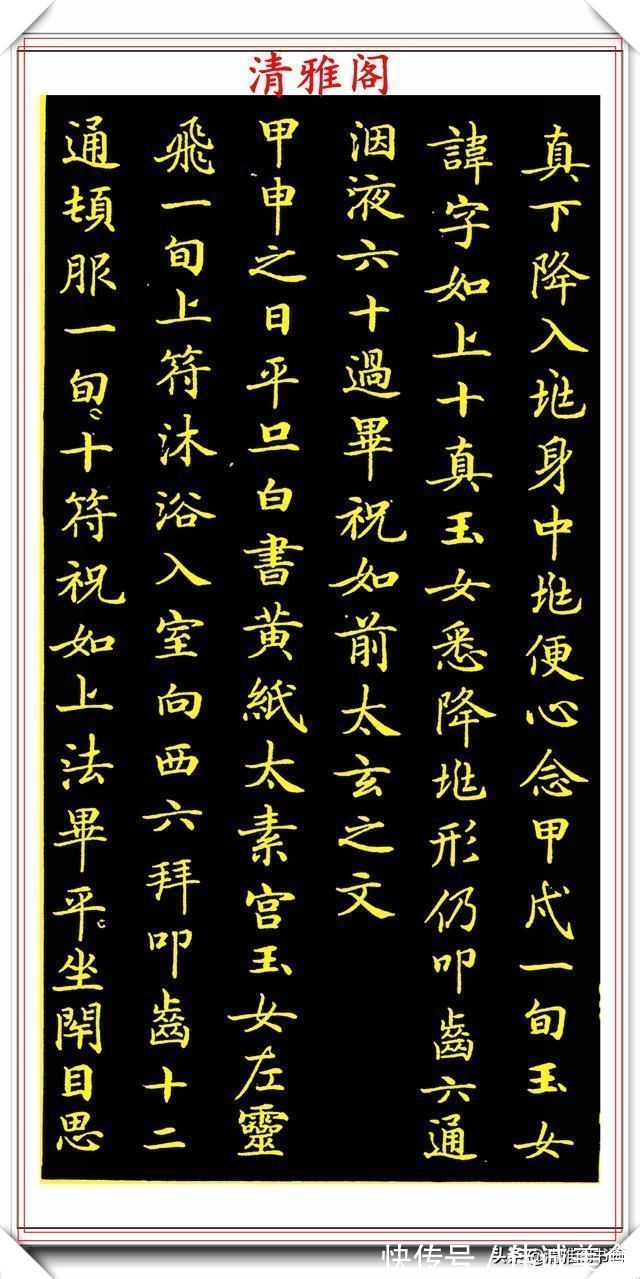 清雅阁
真下降入兆身中兆便心念甲戌一旬玉女
諱字如上十真玉女悉降兆形仍叩齒六通
洇液六十過畢祝如前太玄之文
甲申之日平旦白書黄紙太素宫玉女左靈
飛一旬上符沐浴入室向西六拜叩齒十二
通頓服一旬十符祝如上法畢平坐閇目思
快传号 /